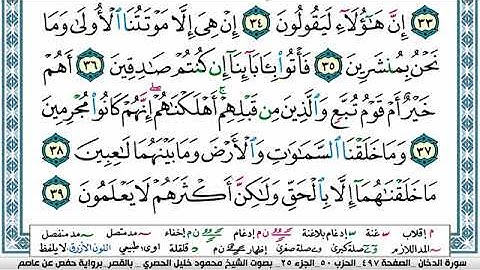 ٣٣ إِنَّ هَٰٓؤُلَآءِ لَيَقُولُونَ ٣٤ إِنْ هِىَ إِلَّا مَوْتَتُنَا ٱلْأُولَىٰ وَمَا
نَحْنُ بِمُنشَرِينَ ٣٥ فَأْتُوا۟ بِـَٔابَآئِنَآ إِن كُنتُمْ صَٰدِقِينَ ٣٦ أَهُمْ
خَيْرٌ أَمْ قَوْمُ تُبَّعٍ وَٱلَّذِينَ مِن قَبْلِهِمْ ۚ أَهْلَكْنَٰهُمْ ۖ إِنَّهُمْ كَانُوا۟ مُجْرِمِينَ
٣٧ وَمَا خَلَقْنَا ٱلسَّمَٰوَٰتِ وَٱلْأَرْضَ وَمَا بَيْنَهُمَا لَٰعِبِينَ ٣٨
مَا خَلَقْنَٰهُمَآ إِلَّا بِٱلْحَقِّ وَلَٰكِنَّ أَكْثَرَهُمْ لَا يَعْلَمُونَ ٣٩
م إقلاب غنة إدغام بلاغنة ن م إدغام إخفاء مد متصل مد منفصل
المد اللازم صلة كبرى وصلة صغرى إظهار ن م قلقلة اوى: طبيعي اللون الأزرق: لا يلفظ
سورة الدخان _ الصفحة ٤٩٧ _ الحزب ٥٠ _ الجزء ٢٥ _ بصوت الشيخ محمود خليل الحصري _ بالقصر_ برواية حفص عن عاصم